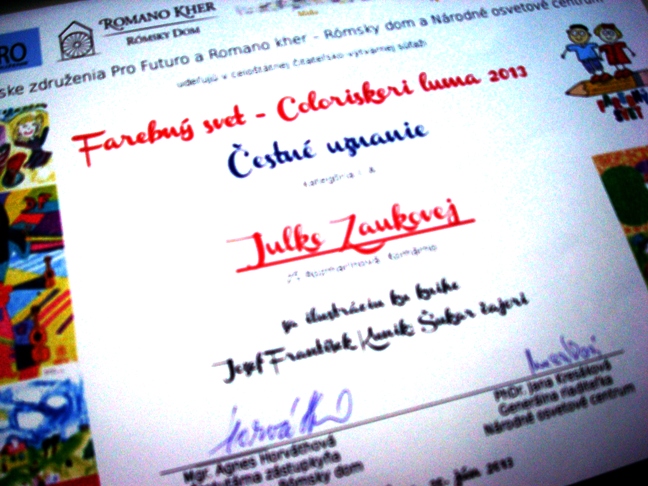 RO
ROMANO KHER
RÓMSKY DOM
ske združenia Pro Futuro a Romano kher - Rómsky dom a Národné osvetové centrum
udeľujú v celoštátnej čitateľsko-výtvarnej súťaži
Farebný svet - Coloriskeri luma 2013
Čestné uznanie
kategória
Julke Zaukovej
za ilustráciu ku knihe
Jozef František Kuník: Šukar čajori
Mgr. Agnes Horváthová
zástupkyňa
Rómsky dom
PhDr. Jana Kresáková
Generálna riaditeľka
Národné osvetové centrum
jún 2013
SVET